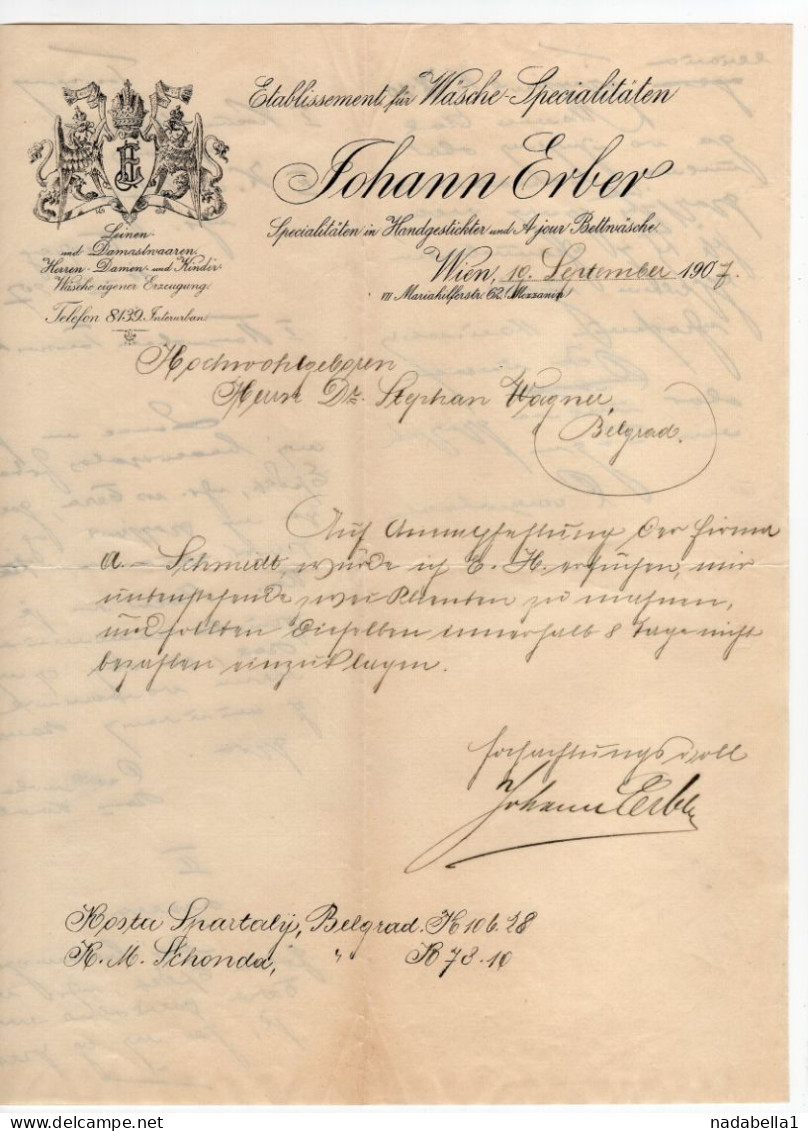 Etablissement für Wäsche-Specialitäten
Johann Erber
Specialitäten in Handgestickter und A-jour Bettwäsche.
Leinen-
und Damastwaaren.
Herren-Damen-und Kinder-
Wäsche eigener Erzeugung.
Telefon 8139. Interurban.
Wien, 10. September 1907.
VII. Mariahilferstr. 62. Mezzanin
Hochwohlgeboren
Herrn Dr. Stephan Wagner,
Belgrad.
Auf Anempfehlung der Firma
A. Schmidt, würde ich E. H. ersuchen, mir
untenstehende zwei Klienten zu mahnen,
und sollten dieselben innerhalb 8 Tage nicht
bezahlen einzuklagen.
Hochachtungsvoll
Johann Erber
Kosta Spartaly, Belgrad. K 106.28
K. M. Schonda, " K 78.10
www.delcampe.net
nadabella1